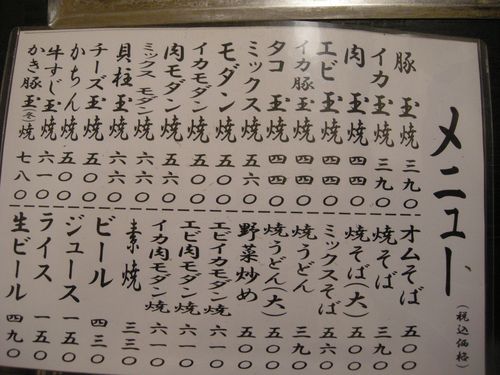 メニュー
(税込価格)
豚玉焼 三九〇
イカ玉焼 三九〇
肉玉焼 四四〇
エビ玉焼 四四〇
イカ豚玉焼 四四〇
タコ玉焼 四四〇
ミックス焼 五六〇
モダン焼 五〇〇
イカモダン焼 五〇〇
肉モダン焼 五六〇
ミックスモダン焼 六六〇
貝柱玉焼 六六〇
チーズ玉焼 五〇〇
かちん焼 五〇〇
牛すじ玉焼 六一〇
かき豚玉(冬)焼 七八〇
オムそば 五〇〇
焼そば 三九〇
焼そば(大) 五〇〇
ミックスそば 五六〇
焼うどん 三九〇
焼うどん(大) 五〇〇
野菜炒め 五〇〇
エビイカモダン焼 六一〇
エビ肉モダン焼 六一〇
イカ肉モダン焼 六一〇
素焼 三三〇
ビール 四三〇
ジュース 一五〇
ライス 一五〇
生ビール 四九〇